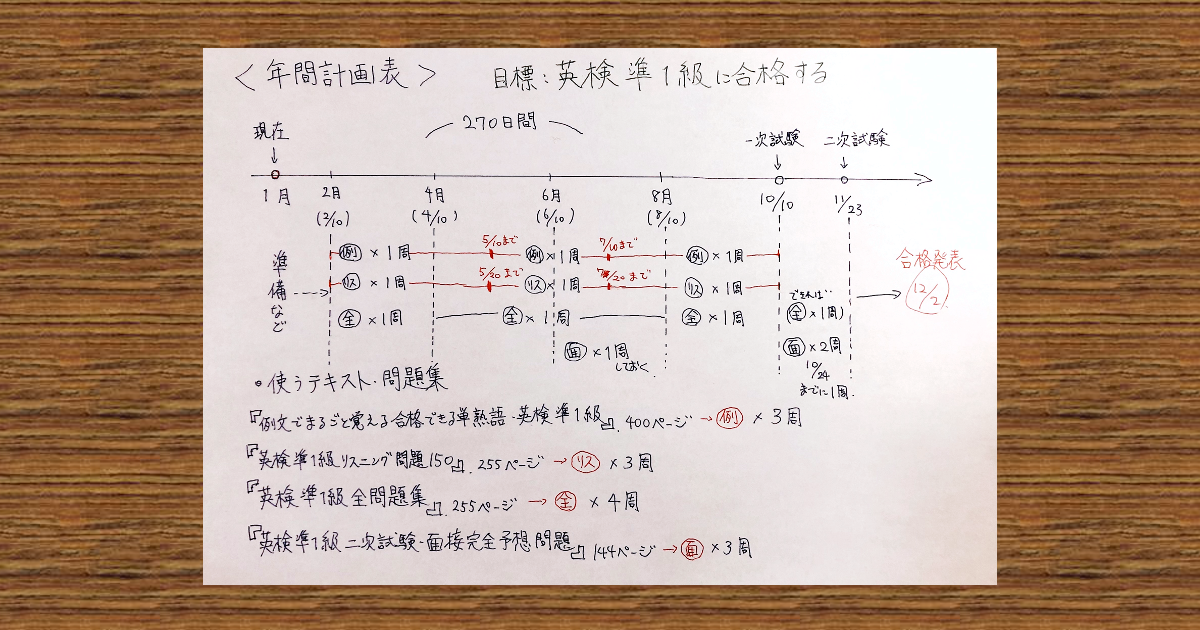 ＜年間計画表＞ 目標：英検準1級に合格する
270日間
現在
一次試験 二次試験
1月 2月 4月 6月 8月 10/10 11/23
(2/10) (4/10) (6/10) (8/10)
準備など
例×1周 5/10まで 例×1周 7/10まで 例×1周
リス×1周 5/20まで リス×1周 7/20まで リス×1周
全×1周 全×1周 全×1周
できれば
(全×1周)
面×1周
しておく
面×2周
10/24
までに1周.
合格発表
12/2
・使うテキスト・問題集
『例文でまるごと覚える合格できる単熟語・英検準1級』. 400ページ → 例 ×3周
『英検準1級リスニング問題150』. 255ページ → リス ×3周
『英検準1級全問題集』. 255ページ → 全 ×4周
『英検準1級二次試験・面接完全予想問題』 144ページ → 面 ×3周